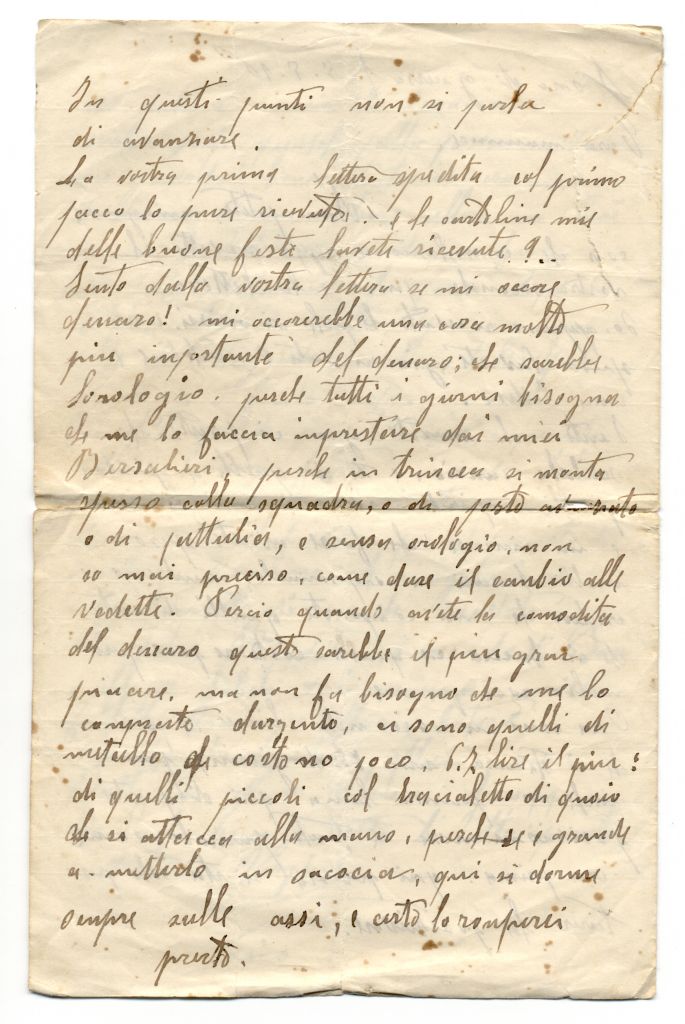 In questi punti non si parla
di avanzare.
La vostra prima lettera spedita col primo
pacco lo pure ricevuta. e le cartoline mie
delle buone feste lavete ricevute?..
Sento dalla vostra lettera se mi occore
denaro! mi occorerebbe una cosa molto
piu inportante del denaro; che sarebbe
Lorologio. perche tutti i giorni bisogna
che me lo faccia inprestare dai miei
Bersalieri, perche in trincea si monta
spesso colla squadra, o di posto avanzato
o di pattulia, e senza orologio, non
so mai preciso, come dare il canbio alle
vedette. Percio quando avete la comodita
del denaro questo sarebbe il piu gran
piacere, ma non fa bisogno che me lo
conprate dargento, ci sono quelli di
metallo che costono poco, 6.7 lire il piu:
di quelli piccoli col bracialetto di quoio
che si attacca alla mano, perche se e grande
a metterlo in sacocia, qui si dorme
senpre sulle assi, e certo lo ronperei
presto.